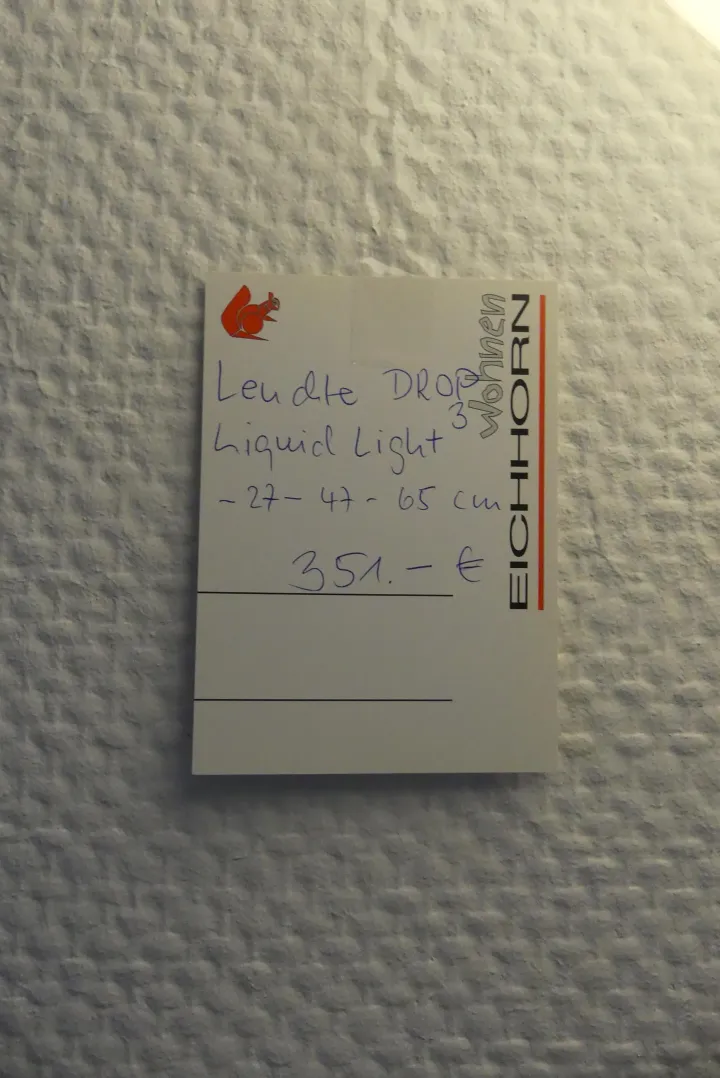 Leuchte DROP 3
Liquid Light
- 27 - 47 - 65 cm
351.- €
wohnen
EICHHORN